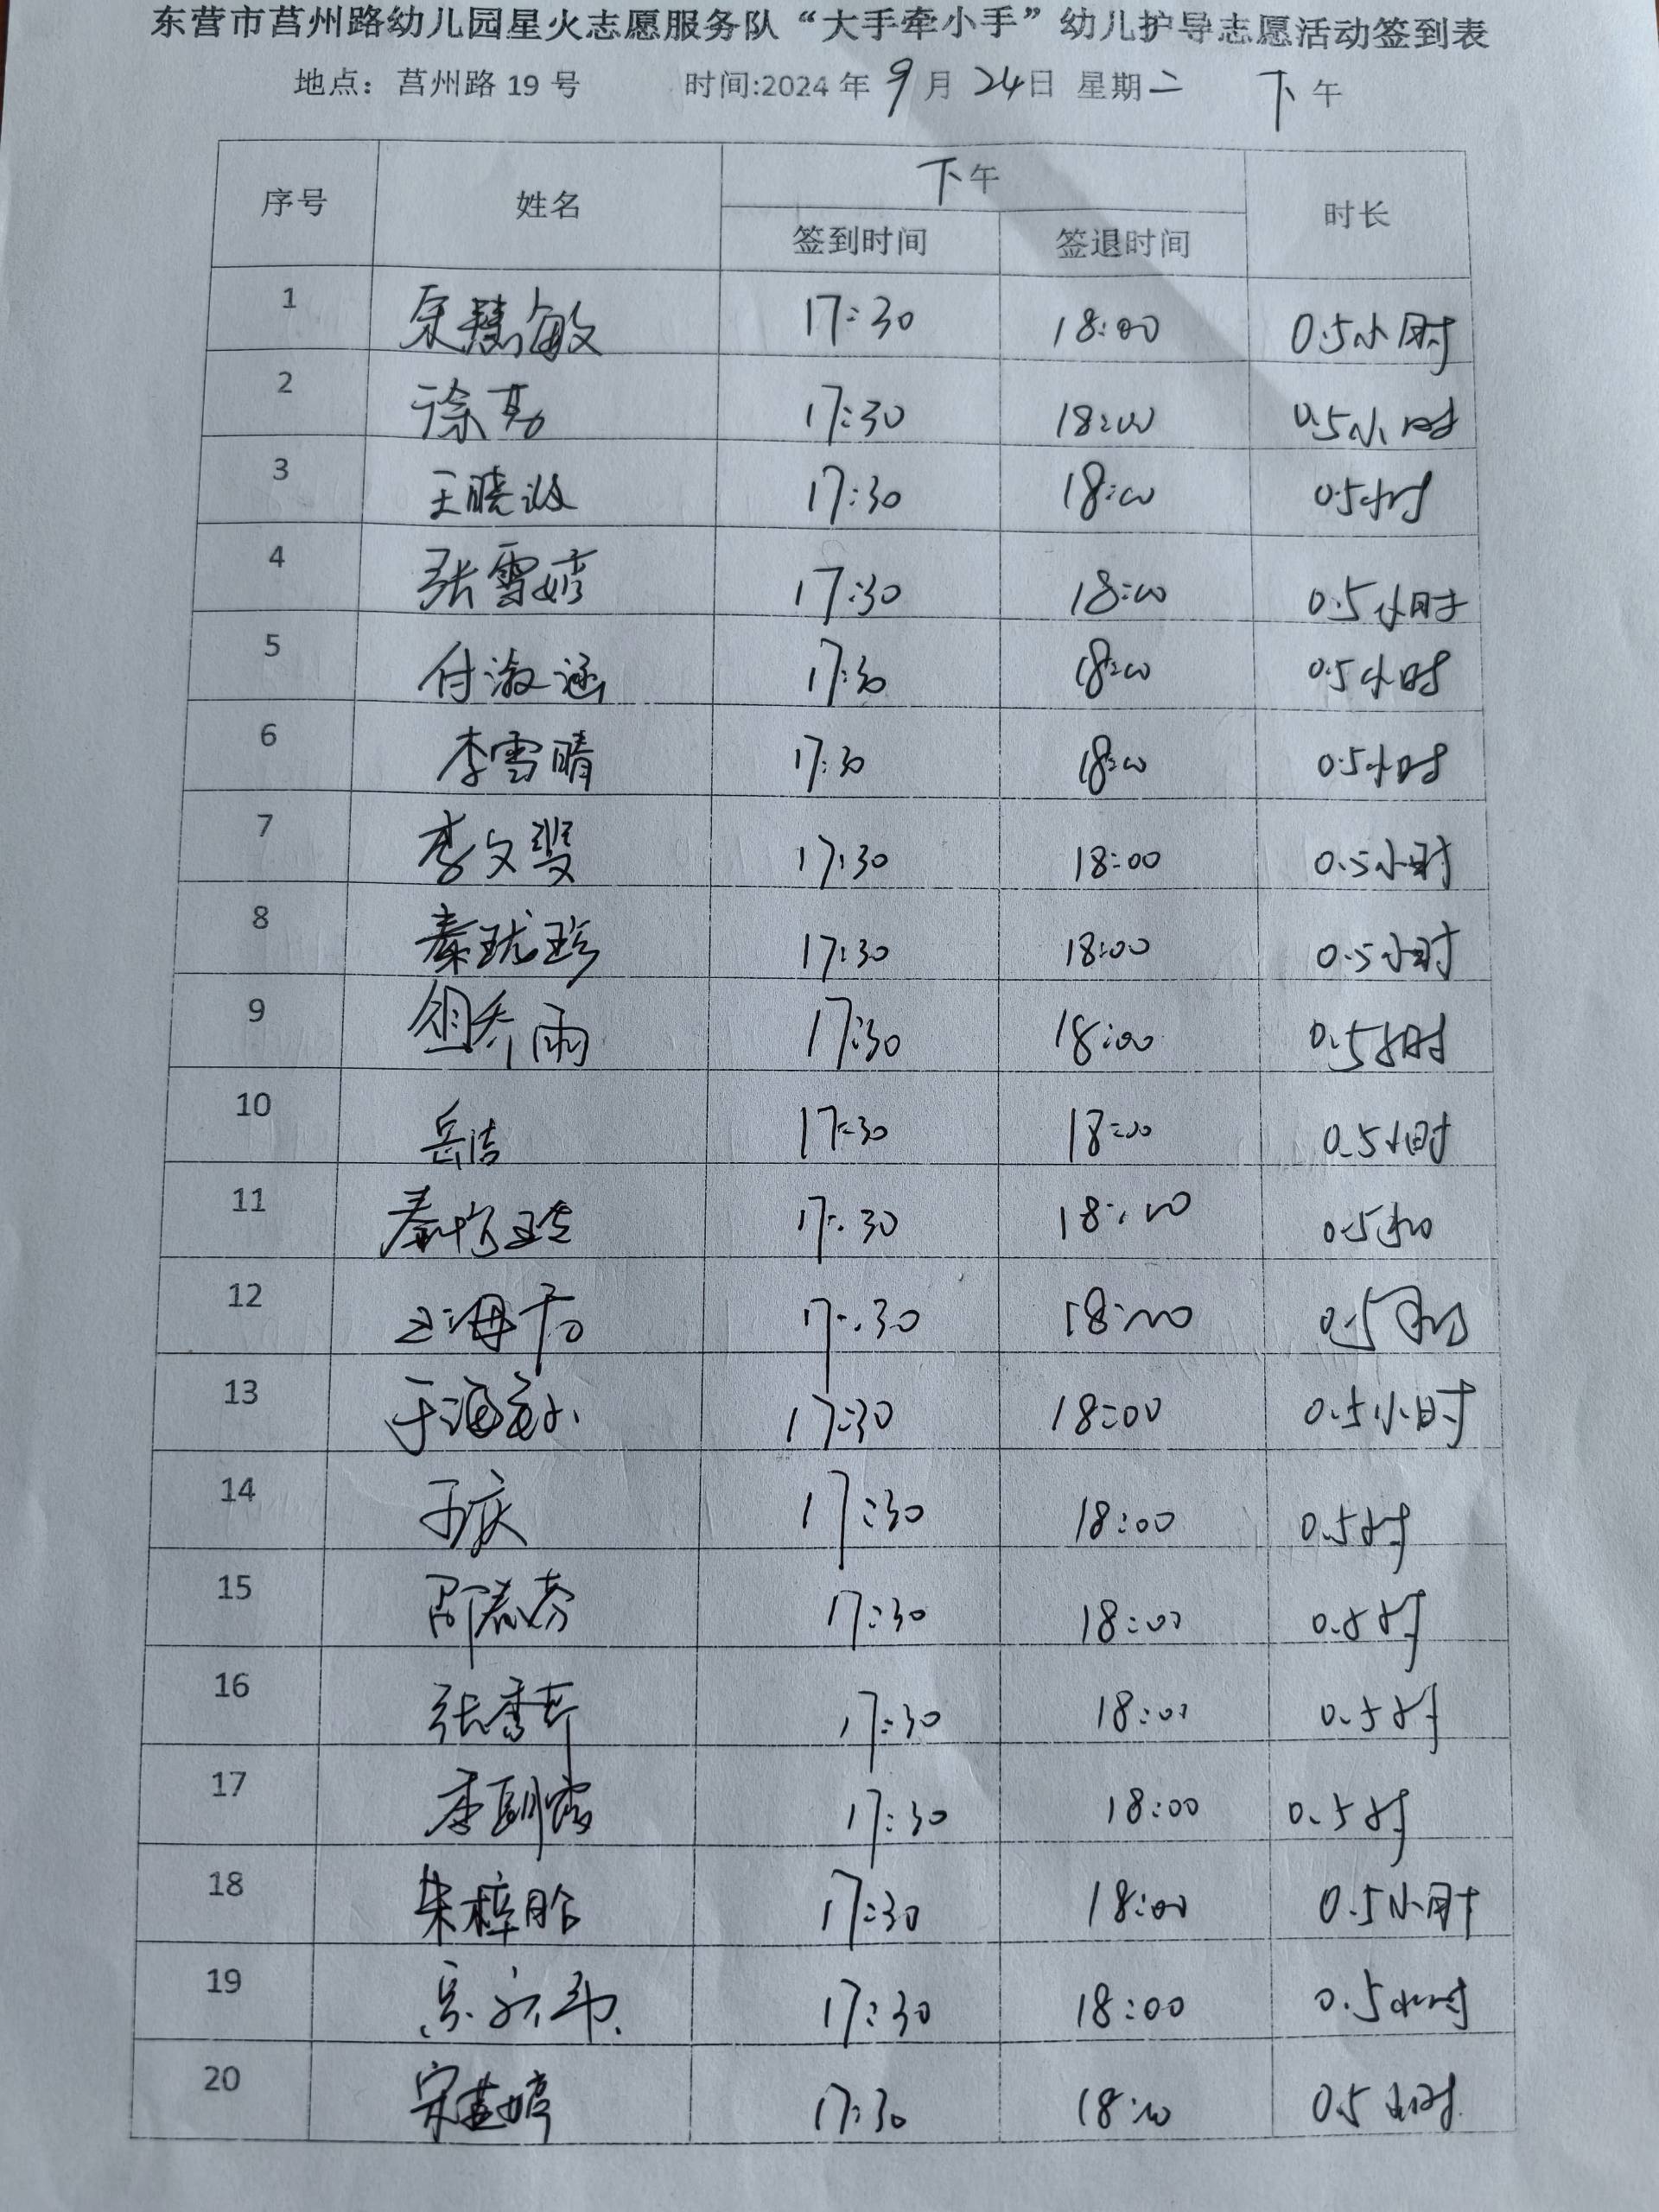 东营市莒州路幼儿园星火志愿服务队“大手牵小手”幼儿护导志愿活动签到表
地点：莒州路 19 号 时间:2024 年 9 月 24日 星期二 下午
序号 姓名 下午 时长
签到时间 签退时间
1 17:30 18:00 0.5小时
2 17:30 18:00 0.5小时
3 王晓 17:30 18:00 0.5小时
4 张雪婷 17:30 18:00 0.5小时
5 付淑涵 17:30 18:00 0.5小时
6 李雪晴 17:30 18:00 0.5小时
7 李文 17:30 18:00 0.5小时
8 秦珑珍 17:30 18:00 0.5小时
9 17:30 18:00 0.5小时
10 岳洁 17:30 18:00 0.5小时
11 秦 17:30 18:00 0.5
12 17:30 18:00 0.5
13 于海 17:30 18:00 0.5小时
14 于庆 17:30 18:00 0.5小时
15 17:30 18:00 0.5小时
16 张秀芹 17:30 18:00 0.5小时
17 李 17:30 18:00 0.5小时
18 朱梓贻 17:30 18:00 0.5小时
19 17:30 18:00 0.5小时
20 宋 婷 17:30 18:00 0.5小时